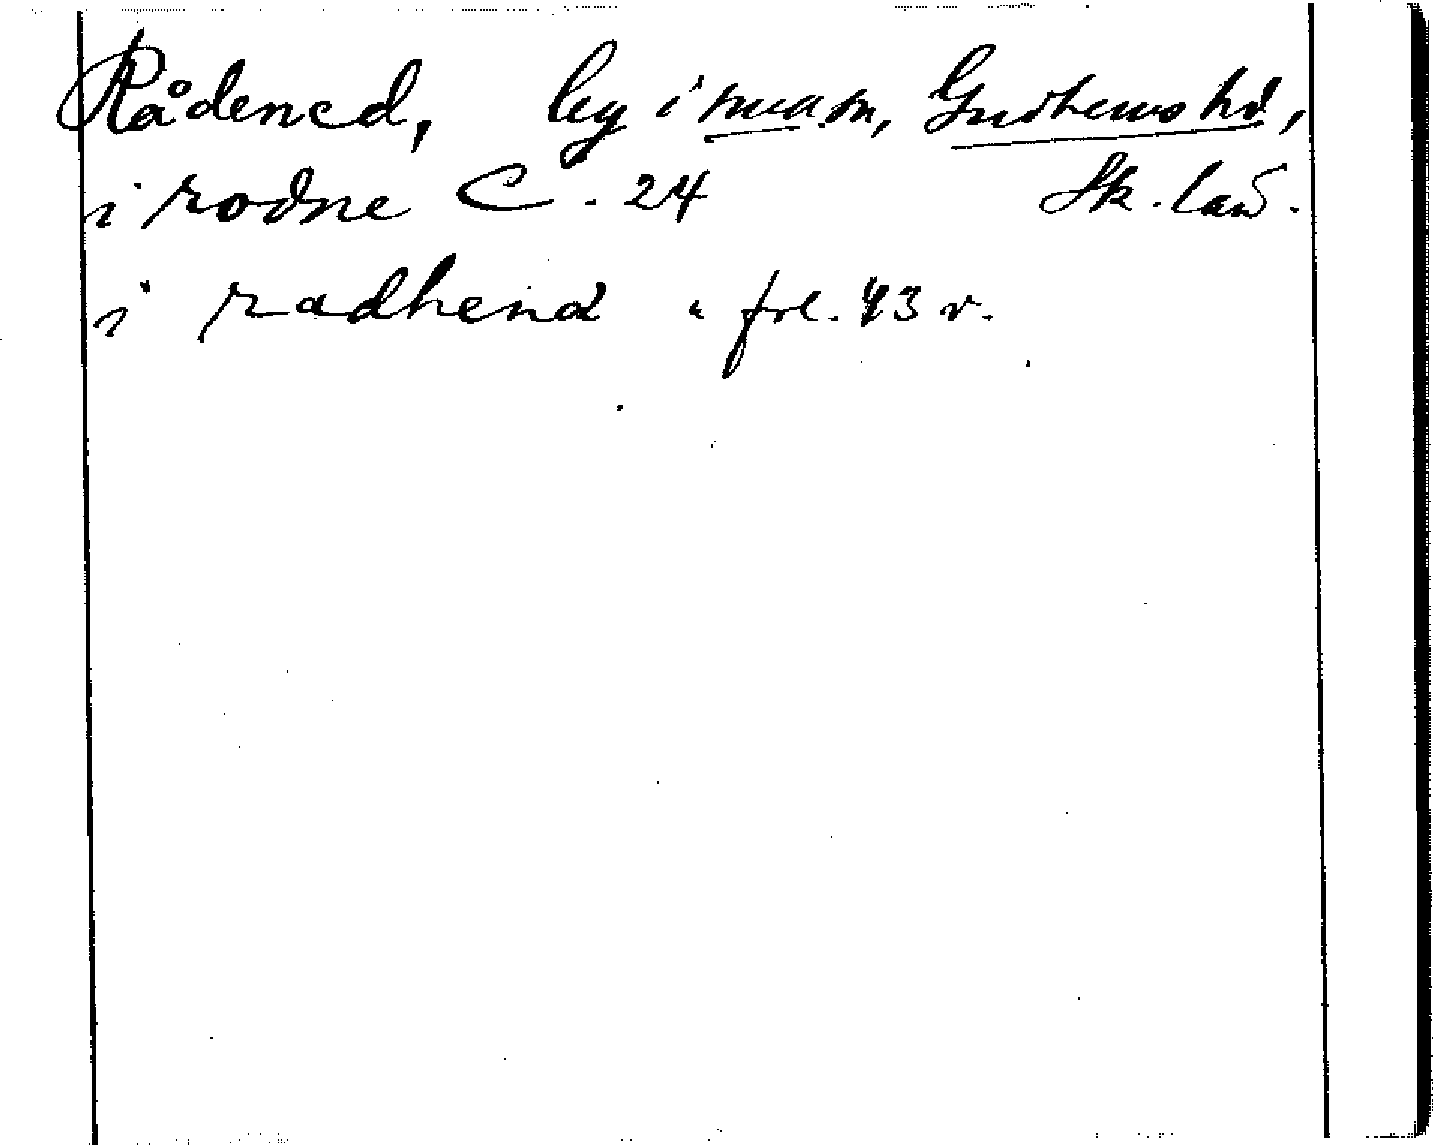 Rådened, by i s.n., Gudhems hd,
i rodne C. 24 Sk. län.
i radhend " fol. 43 v.